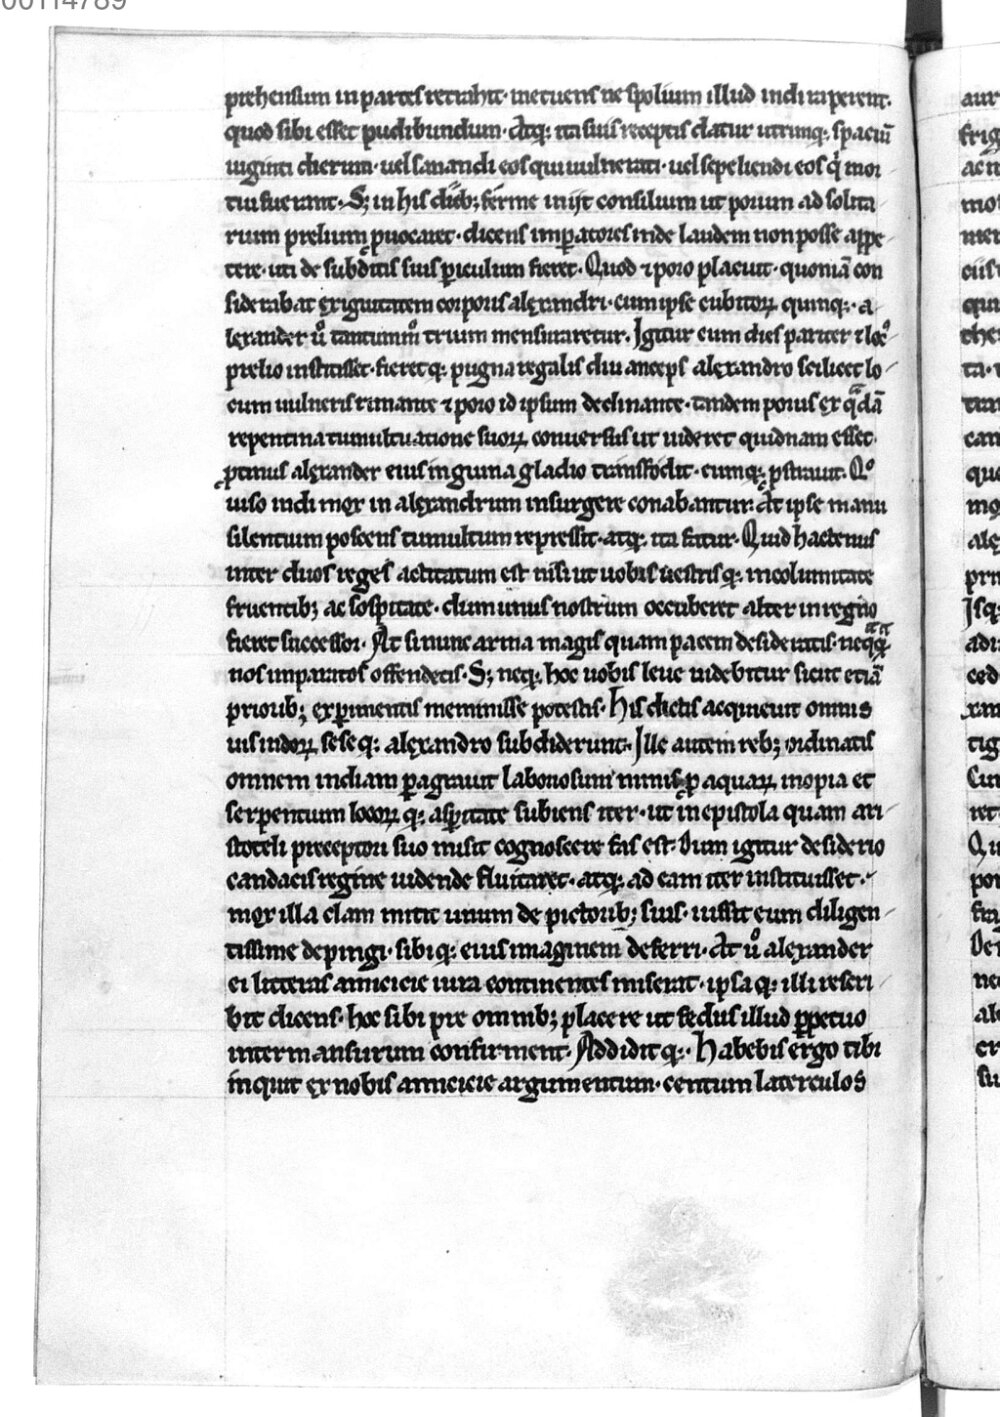 00114789
prehensum in partes retrahit· metuens ne spolium illud indi raperent·
quod sibi esset pudibundum· Atq; ita suis receptis datur utrimq; spaciū
uiginti dierum· uel sanandi eos qui uulnerati· uel sepeliendi eos qͥ mor
tui fuerant· S; in his dieb; ferme iniit consilium ut porum ad solita
rium prelium ꝓuocaret· dicens imꝑatores inde laudem non posse appe
tere· uti de subditis suis ꝑiculum fieret· Quod ⁊ poro placuit· quoniā con
siderabat exiguitatem corporis alexandri· cum ipse cubitoꝝ quinq;· a
lexander u͛o tantummͦ trium mensuraretur· Igitur cum dies pariter ⁊ locꝰ
prelio institisset· fieretq; pugna regalis diu anceps alexandro scilicet lo
cum uulneris rimante ⁊ poro id ipsum declinante· tandem porus ex qͣdā
repentina tumultuatione suoꝝ conuersus ut uideret quidnam esset·
ꝓtinus alexander eius inguina gladio transfodit· eumq; ꝓstrauit· Qͦ
uiso indi mox in alexandrum insurgere conabantur· At ipse manu
silentium poscens tumultum repressit· atq; ita fatur· Quid hactenus
inter duos reges actitatum est nisi ut uobis uestrisq; incolumitate
fruentib; ac sospitate· dum unus nostrum occuberet alter in regno
fieret successor· At si nunc arma magis quam pacem desideratis· neqͣqͣ
nos imparatos offendetis· S; neq; hoc uobis leue uidebitur sicut etiā
priorib; exꝑimentis meminisse potestis· His dictis acquieuit omnis
uis indoꝝ sese q; alexandro subdiderunt· Ille autem reb; ordinatis
omnem indiam ꝑagrauit laboriosum nimis ꝓ aquaꝝ inopia et
serpentum locoꝝ q; asꝑitate subiens iter· ut in epistola quam ari
stoteli preceptori suo misit cognoscere fas est· Dum igitur desiderio
candacis regine uidende fluitaret· atq; ad eam iter instituisset·
mox illa clam mittit unum de pictorib; suis· iussit eum diligen
tissime depingi· sibiq; eius imaginem deferri· At u͛o alexander
ei litteras amicicie iura continentes miserat· ipsaq; illi rescri
bit dicens· hoc sibi pre omnib; placere ut fedus illud ꝑpetuo
intermansurum confirment· Addiditq;· Habebis ergo tibi
inquit ex nobis amicicie argumentum· centum laterculos